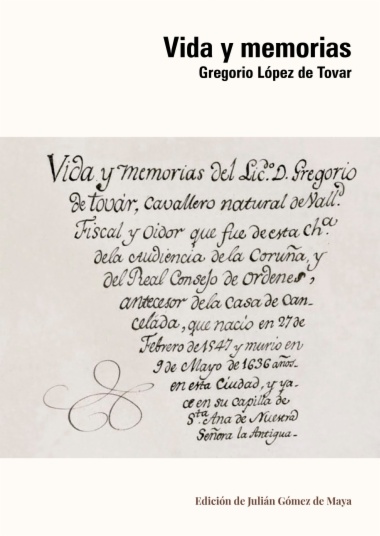 Vida y memorias
Gregorio López de Tovar
Vida y memorias del Lic.do D. Gregorio
de továr, cavallero natural de Vall.d
Fiscal y Oidor que fue de esta ch.a
de la Audiencia de la Coruña, y
del Real Consejo de Ordenes,
antecesor de la Casa de Can-
celada, que nacio en 27 de
Febrero de 1547 y murio en
9 de Mayo de 1636 años.
en esta Ciudad, y ya-
ce en su capilla de
S.ta Ana de Nuestra
Señora la Antigua-
Edición de Julián Gómez de Maya